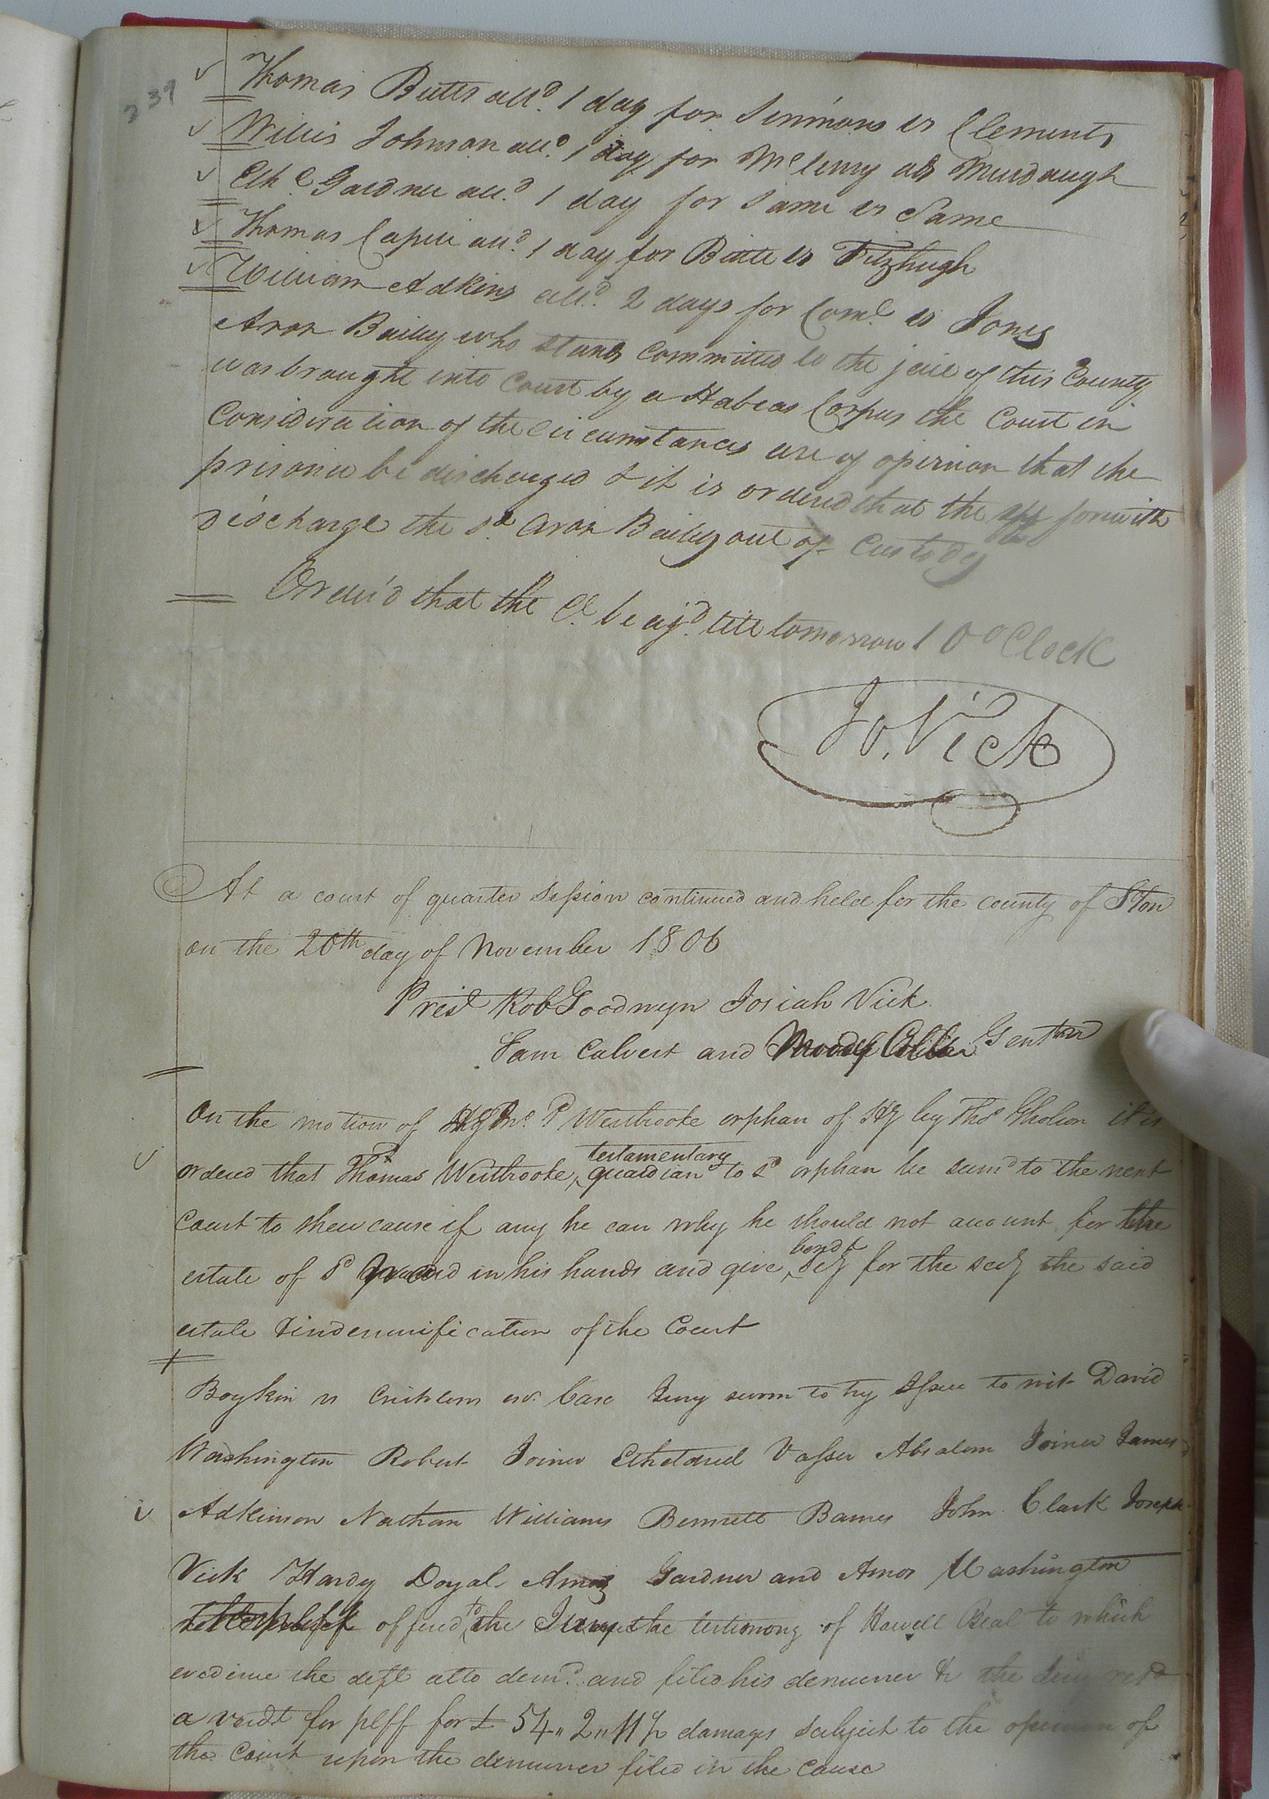 239
Thomas Butts alld. 1 day for Simmons vs Clements
Willis Johnson alld. 1 day for McClenny ads Murdaugh
Ethd. Gardner alld. 1 day for Same vs Same
Thomas Capell alld. 1 day for Battle vs Fitzhugh
William Adkins alld. 2 days for Comth. vs Jones
Aron Bailey who stands committed to the jail of this County
was brought into Court by a Habeas Corpus the Court in
Consideration of the circumstances are of opinion that the
prisoner be discharged & it is ordered that the forwith
discharge the sd. Aron Bailey out of Custody
Order'd that the Ct. be ajd. till tomorrow 10 oClock
Jo. Vick
At a court of quarter Session continued and held for the county of Ston
on the 20th day of November 1806
Prest. Rob Goodwyn Josiah Vick
Sam Calvert and Gentlm
On the motion of P Westbrooke orphan of Hy by Ths Gholson it is
ordered that Thomas Westbrooke testamentary guardian to sd orphan be sumd to the next
Court to shew cause if any he can why he should not account for the
estate of sd Ward in his hands and give bond & secy for the secy the said
estate & indemnification of the Court
Boykin vs Case Jury sworn to try Issue to wit David
Washington Robert Joiner Etheldred Vasser Absalom Joiner James
Adkinson Nathan Williams Bennett Barnes John Clark Joseph
Vick Hardy Doyal Amos Gardner and Amos Washington
offered to the Jury the testimony of Howell Beal to which
evidence the deft atto demd. and filed his demurrer & the Jury retd
a verdt for plff for £ 54 " 2 " damages subject to the opinion of
the Court upon the demurrer filed in the cause